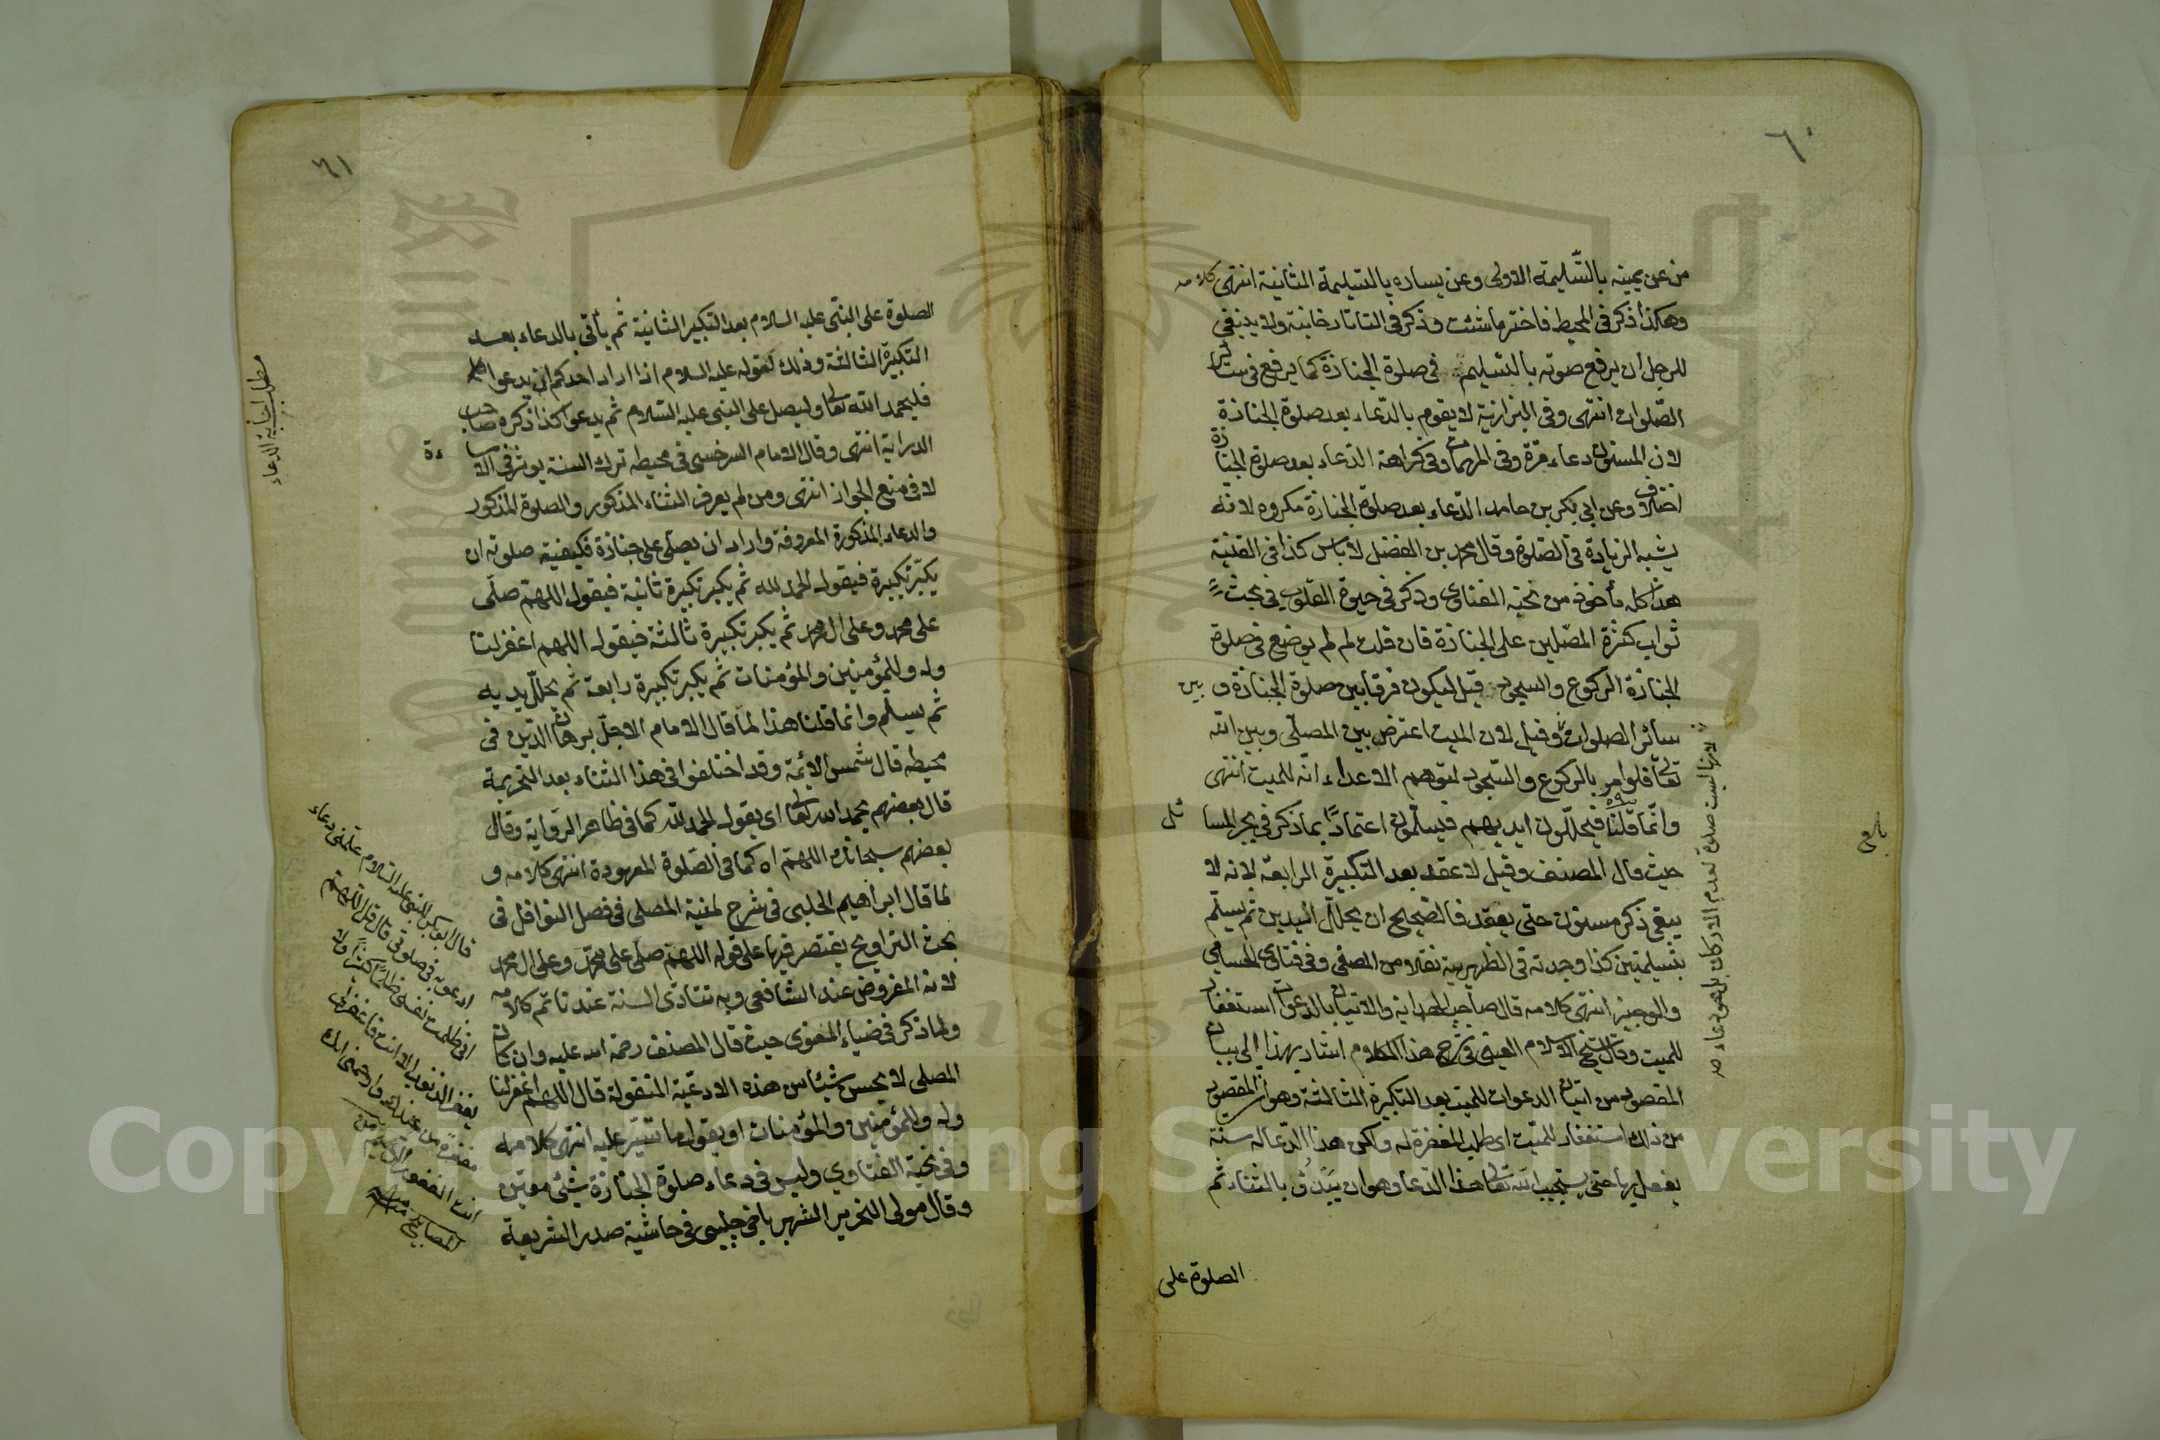 ٦٠
من عن يمينه بالتّسليمة الاولى وعن يساره بالتسليمة الثانية انتهى كلامه
وهكذا ذكر فى المحيط فاختر ما شئت وذكر فى التاتارخانية ولا ينبغى
للرجل ان يرفع صوته بالتسليم فى صلوة الجنازة كما يرفع فى سائر
الصّلوات انتهى وفى البزازية لا يقوم بالدّعاء بعد صلوة الجنازة
لان المسنون دعاء مرة وفى كراهة الدعاء بعد صلوة الجنازة
اختلاف وعن ابى بكر بن حامد الدّعاء بعد صلوة الجنازة مكروه لانه
يشبه الزيادة فى الصّلوة وقال محمد بن الفضل لا بأس كذا فى القنية
هذا كله مأخوذ من نخبة الفتاوى وذكر فى حيوة القلوب فى بحث
ثواب كثرة المصّلين على الجنازة فان قلت لم لم يوضع فى صلوة
الجنازة الركوع والسجود قيل ليكون فرقا بين صلوة الجنازة و بين
سائر الصلوات وقيل لان الميت اعترض بين المصلّى وبين الله
تعالى فلو امر بالركوع والسّجود لتوهم الاعداء انّه للميت انتهى
وانّما قلنا فيحلّلون ايديهم فيسلّمون اعتمادًا بما ذكر فى بحر المسائل
حيث قال المصنف وقيل لا عقد بعد التكبيرة الرابعة لانه لا
يبقى ذكر مسنون حتى يعقد فالصّحيح ان يحلّل اليدين ثم يسلّم
بتسليمتين كذا وجدته فى الظهيرية نقلا من المصفى وفى فتاوى الحسامى
والوجيز انتهى كلامه قال صاحب الهداية والاتيان بالدعوات استغفار
للميت وقال شيخ الاسلام العينى فى شرح هذا الكلام اشار بهذا الى بيان
المقصود من اتيان الدعوات للميت بعد التكبيرة الثالثة وهو ان المقصود
من ذلك استغفار للميّت اى طلب المغفرة له ولكن هذا الدّعاء له سنة
يفعل بها حتى يستجيب الله تعالى هذا الدّعاء وهو ان يبدأ بالثناء ثم
الصلوة على
لانها ليست صلوة لعدم الاركان بل هى دعاء صح
٦١
الصلوة على النبّى عليه السلام بعد التكبير الثانية ثم يأتى بالدعاء بعد
التكبيرة الثالثة وذلك لقوله عليه السلام اذا اراد احدكم ان يدعوا
فليحمد الله تعالى وليصل على النبى عليه السّلام ثم يدعو كذا ذكره صاحب
الدراية انتهى وقال الامام السرخسى فى محيطه ترك السنة يوثر فى الاساءة
لا فى منع الجواز انتهى ومن لم يعرف الثناء المذكور والصلوة المذكور
والدعاء المذكورة المعروفة واراد ان يصلّى على جنازة فكيفية صلوته ان
يكبّر تكبيرة فيقول الحمد لله ثم يكبر تكبيرة ثانية فيقول اللهم صلّى
على محمد وعلى ال محمد ثم يكبر تكبيرة ثالثة فيقول اللهم اغفر لنا
وله وللمؤمنين والمؤمنات ثم يكبر تكبيرة رابعة ثم يحلّل يديه
ثم يسلّم وانما قلنا هذا لما قال الامام الاجلّ برهان الدّين فى
محيطه قال شمس الائمّة وقد اختلفوا فى هذا الثناء بعد التحريمة
قال بعضهم يحمد الله تعالى اى يقول الحمد لله كما فى ظاهر الرّواية وقال
بعضهم سبحانك اللهمّ اه كما فى الصّلوة المعهودة انتهى كلامه و
لما قال ابراهيم الحلبى فى شرح لمنية المصلى فى فصل النوافل فى
بحث التراويح يقتصر فيها على قوله اللهمّ صلّى على محمّد وعلى ال محمد
لانه المفروض عند الشافعى وبه تتأدّى السنة عندنا تمّ كلامه
ولما ذكر فى ضياء المعنوى حيث قال المصنف رحمة الله عليه وان كان
المصلى لا يحسن شيئا من هذه الادعيّة المنقولة قال اللهم اغفر لنا
وله وللمؤمنين والمؤمنات او يقول ما تيسّر عليه انتهى كلامه
وفى نخبة الفتاوى وليس فى دعاء صلوة الجنازة شئ معيّن
وقال مولى النحرير الشهير باخى چلبى فى حاشية صدر الشريعة
مطلب اجابة الدعاء
قال ابو بكر للنبى عليه السّلام علّمنى دعاء
ادعو به فى صلوتى قال قل اللهمّ
انى ظلمت نفسى ظلمًا كثيرًا ولا
يغفر الذنوب الا انت فاغفر لى
مغفرة من عندك وارحمنى انك
انت الغفور الرحيم من
المصابيح